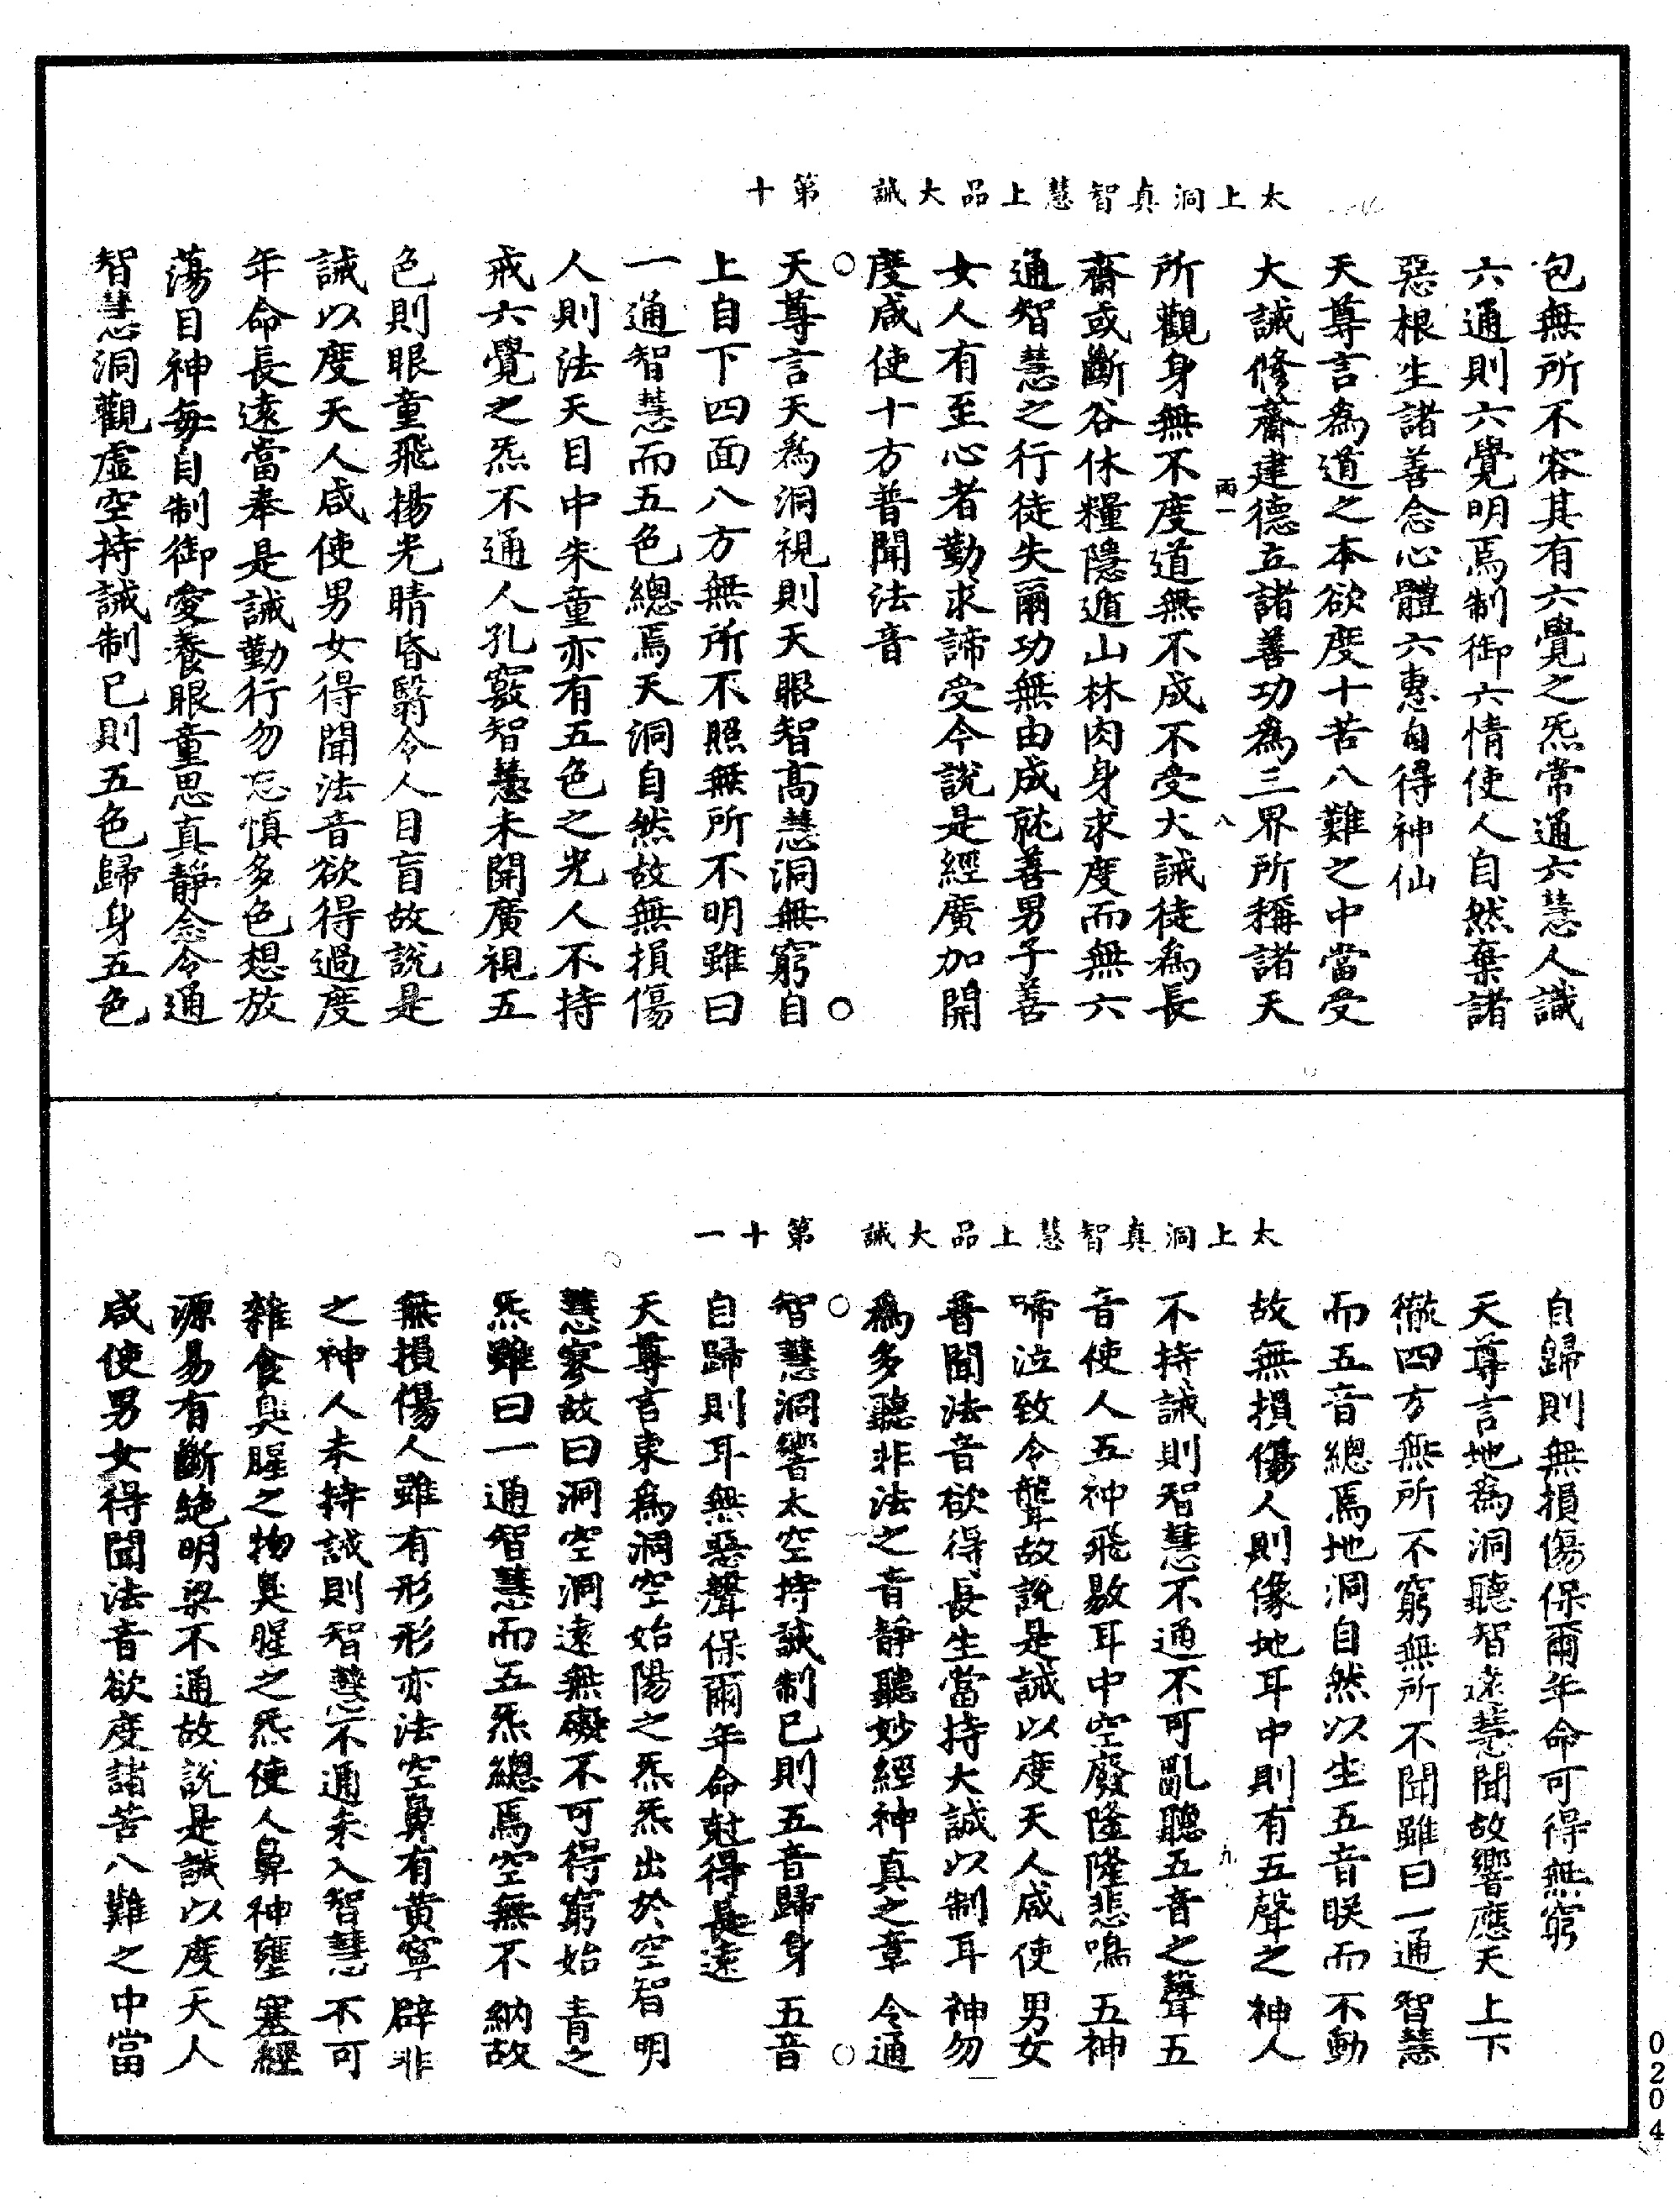 太上洞真智慧上品大誡　第十
包無所不容其有六覺之炁常通六慧人識
六通則六覺明焉制御六情使人自然棄諸
惡根生諸善念心體六惠自得神仙
天尊言為道之本欲度十苦八難之中當受
大誡修齋建德立諸善功為三界所稱諸天
雨一　八
所觀身無不度道無不成不受大誡徒為長
齋或斷谷休糧隱遁山林肉身求度而無六
通智慧之行徒失爾功無由成就善男子善
女人有至心者勤求諦受今說是經廣加開
度咸使十方普聞法音
天尊言天為洞視則天眼智高慧洞無窮自
上自下四面八方無所不照無所不明雖曰
一通智慧而五色總焉天洞自然故無損傷
人則法天目中朱童亦有五色之光人不持
戒六覺之炁不通人孔竅智慧未開廣視五
色則眼童飛揚光睛昏翳令人目盲故說是
誡以度天人咸使男女得聞法音欲得過度
年命長遠當奉是誡勤行勿忘慎多色想放
蕩目神每自制御愛養眼童思真靜念令通
智慧洞觀虛空持誡制已則五色歸身五色
太上洞真智慧上品大誡　第十一
自歸則無損傷保爾年命可得無窮
天尊言地為洞聽智遠慧聞故響應天上下
徹四方無所不窮無所不聞雖曰一通智慧
而五音總焉地洞自然以生五音䀹而不動
故無損傷人則像地耳中則有五聲之神人
九
不持誡則智慧不通不可亂聽五音之聲五
音使人五神飛敭耳中空廢隆隆悲鳴五神
啼泣致令聾故說是誡以度天人咸使男女
普聞法音欲得長生當持大誡以制耳神勿
為多聽非法之音靜聽妙經神真之章令通
智慧洞響太空持誡制已則五音歸身五音
自歸則耳無惡聲保爾年命尅得長遠
天尊言東為洞空始陽之炁炁出於空智明
慧寥故曰洞空洞遠無礙不可得窮始青之
炁雖曰一通智慧而五炁總焉空無不納故
無損傷人雖有形形亦法空鼻有黃寧辟非
之神人未持誡則智慧不通未入智慧不可
雜食臭腥之物臭腥之炁使人鼻神壅塞經
源易有斷絕明梁不通故說是誡以度天人
咸使男女得聞法音欲度諸苦八難之中當
0204